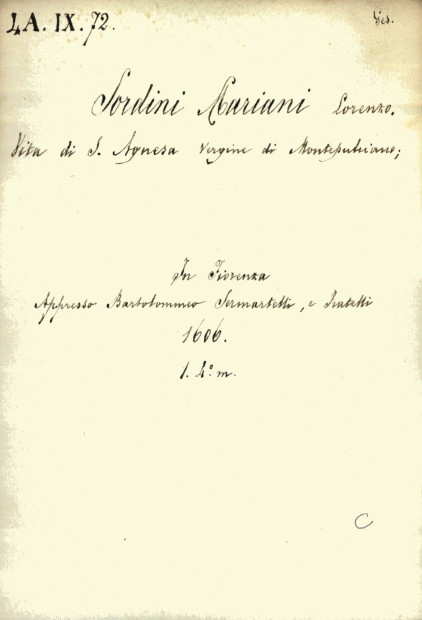 4A. IX. 72.
Ges.
Sordini Mariani Lorenzo.
Vita di S. Agnesa Vergine di Montepulciano;
In Fiorenza
Appresso Bartolommeo Sermartelli, e Fratelli
1606.
1. 4.º m.
C